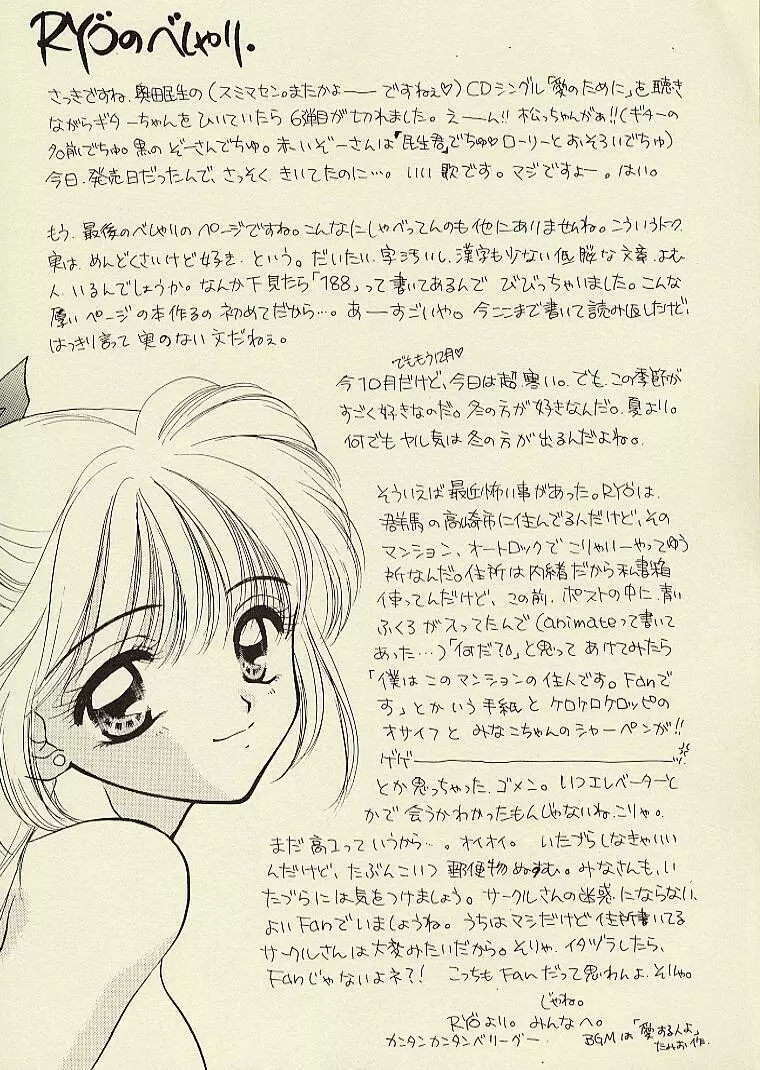 RYÖのべしゃり.
さっきですね、奥田民生の(スミマセン。またかよーー ですねぇ♡) CDシングル「愛のために」を聴き
ながらギターちゃんをひいていたら 6弾目が切れました。えーん!! 松っちゃんがぁ!!(ギターの
名前でちゅ。黒の ぞーさんでちゅ。赤いぞーさんは「民生君」でちゅ♡ ローリーと おそろいでちゅ)
今日、発売日だったんで、さっそく きいてたのに…。 いい 歌です。マジですよー。はい。
もう、最後のべしゃりの ページですね。こんなにしゃべってんのも 他にありませんね。こういうトーク、
実は、めんどくさいけど 好き、という。だいたい、字汚いし、漢字も少ない 低脳な 文章、よむ
人、いるんでしょうか。なんか下見たら「188」って書いてあるんで びびっちゃいました。こんな
厚い ページの本作るの 初めてだから…。 あーーすごいや。 今ここまで書いて 読み返したけど、
はっきり言って 実のない 文だねぇ。
でももう12月♡
今10月だけど、今日は超 寒い。でも、この季節が
すごく好きなのだ。冬の方が好きなんだ。夏より。
何でも ヤル気は 冬の方が 出るんだよね。
そういえば 最近怖い事があった。RYÖは、
群馬の高崎市に住んでるんだけど、その
マンション、オートロックで こりゃいーやってゆう
所なんだ。住所は内緒だから私書箱
使ってんだけど、この前、ポストの中に 青い
ふくろが入ってたんで(animateって書いて
あった…)「何だ?」と思って あけてみたら
「僕は このマンションの住人です。Fanで
す」とかいう手紙と ケロケロケロッピの
オサイフと みなこちゃんの シャーペンが!!
ゲゲーーーー
とか思っちゃった、ゴメン。いつエレベーターと
かで 会うかわかったもんじゃないね、こりゃ。
まだ高1っていうから…。オイオイ。 いたづらしなきゃいい
んだけど、たぶんこいつ 郵便物ぬすむ。みなさんも、い
たづらには気をつけましょう。サークルさんの迷惑にならない、
よいFanでいましょうね。うちはマシだけど 住所書いてる
サークルさんは 大変みたいだから。そりゃ、イタヅラしたら、
Fanじゃないよネ?! こっちも Fanだって思わんよ、そりゃ。
じゃね。
RYÖより。 みんなへ。
カンタンカンタンベリーグー.
BGMは「愛する人よ」
たみお作.